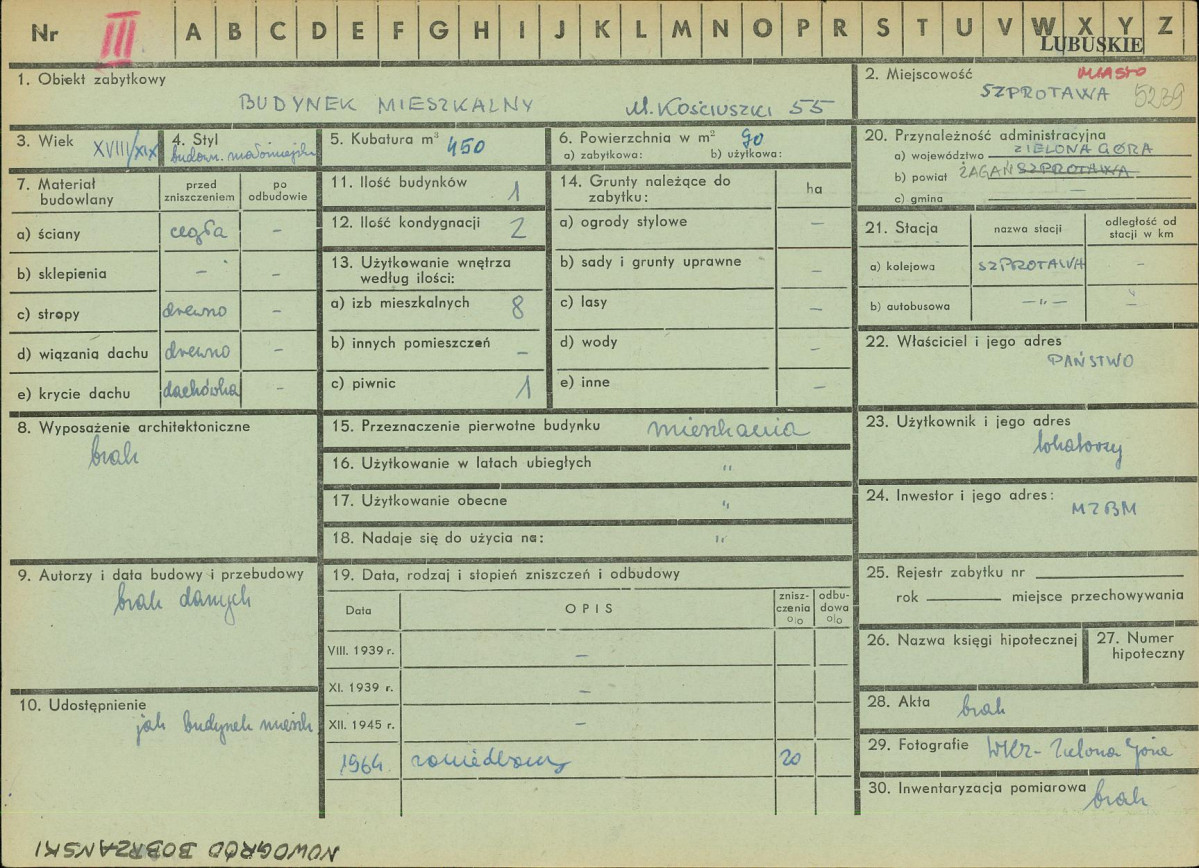 Nr III A B C D E F G H I J K L M N O P R S T U V W X Y Z
LUBUSKIE
1. Obiekt zabytkowy
BUDYNEK MIESZKALNY ul. KOŚCIUSZKI 55
2. Miejscowość MIASTO
SZPROTAWA 5239
3. Wiek XVIII/XIX
4. Styl
budown. małomiejski
5. Kubatura m³ 450
6. Powierzchnia w m² 90
a) zabytkowa: b) użytkowa:
20. Przynależność administracyjna
a) województwo ZIELONA GÓRA
b) powiat ŻAGAŃ SZPROTAWA
c) gmina –
7. Materiał budowlany
przed zniszczeniem
po odbudowie
a) ściany cegła –
b) sklepienia – –
c) stropy drewno –
d) wiązania dachu drewno –
e) krycie dachu dachówka –
11. Ilość budynków 1
12. Ilość kondygnacji 2
13. Użytkowanie wnętrza
według ilości:
a) izb mieszkalnych 8
b) innych pomieszczeń –
c) piwnic 1
14. Grunty należące do
zabytku:
ha
a) ogrody stylowe –
b) sady i grunty uprawne –
c) lasy –
d) wody –
e) inne –
21. Stacja
nazwa stacji
odległość od
stacji w km
a) kolejowa SZPROTAWA –
b) autobusowa –"– "
22. Właściciel i jego adres
PAŃSTWO
8. Wyposażenie architektoniczne
brak
15. Przeznaczenie pierwotne budynku mieszkania
16. Użytkowanie w latach ubiegłych "
17. Użytkowanie obecne "
18. Nadaje się do użycia na: "
23. Użytkownik i jego adres
lokatorzy
24. Inwestor i jego adres:
MZBM
9. Autorzy i data budowy i przebudowy
brak danych
19. Data, rodzaj i stopień zniszczeń i odbudowy
Data
OPIS
znisz-
czenia
o/o
odbu-
dowa
o/o
VIII. 1939 r. –
XI. 1939 r. –
XII. 1945 r. –
1964 zaniedbany 20
25. Rejestr zabytku nr
rok miejsce przechowywania
26. Nazwa księgi hipotecznej
27. Numer
hipoteczny
10. Udostępnienie
jak budynek mieszk
28. Akta brak
29. Fotografie WKZ - Zielona Góra
30. Inwentaryzacja pomiarowa brak
NOWOGRÓD BOBRZAŃSKI